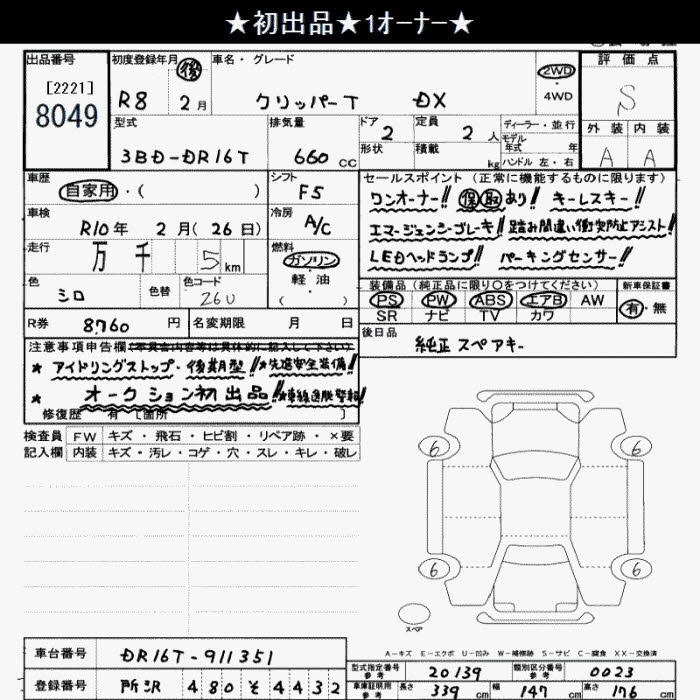 ★初出品★1ｵｰﾅｰ★
出品番号
[2221]
8049
初度登録年月 後
R8 2月
車名・グレード
クリッパーT DX
2WD
・
4WD
評価点
S
外装 内装
A A
型式
3BD-DR16T
排気量
660 CC
ドア
2
定員
2 人
形状
積載
kg
ディーラー・並行
モデル
年式 年
ハンドル 左・右
車歴
自家用・( )
シフト
F5
車検
R10年 2月(26日)
冷房
A/C
走行
万 千 5 km
燃料
ガソリン
・
軽油
( )
色
シロ
色替
色コード
26U
R券 8760 円
名変期限 月 日
セールスポイント (正常に機能するものに限ります)
ワンオーナー!! 保 取 あり! キーレスキー!
エマージェンシーブレーキ! 踏み間違い衝突防止アシスト!
LEDヘッドランプ! パーキングセンサー!
装備品(純正品に限り○をつけてください)
PS PW ABS エアB AW
SR ナビ TV カワ
新車保証書
有・無
後日品
純正スペアキー
注意事項申告欄
★ アイドリングストップ・後期型!! ★先進安全装備!
★ オークション初出品!! ★車線逸脱警報!
修復歴 有 [箇所 ]
検査員
記入欄
FW キズ・飛石・ヒビ割・リペア跡・×要
内装 キズ・汚レ・コゲ・穴・スレ・キレ・破レ
6 6
6 6
スペア
A-キズ E-エクボ U-凹み W-補修跡 S-サビ C-腐食 XX-交換済
車台番号 DR16T-911351
登録番号 所沢 480 そ 4432
型式指定番号
参考
20139
類別区分番号
参考
0023
車庫証明用
参考
長さ 339 cm 幅 147 cm 高さ 176 cm